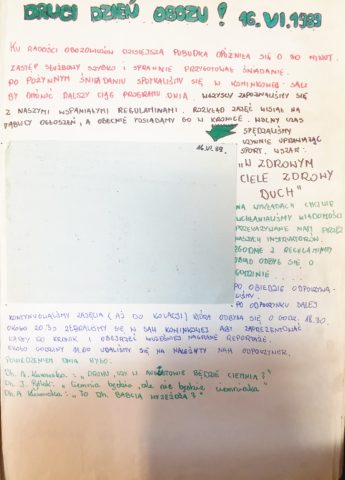 DRUGI DZIEŃ OBOZU! 16.VI.1989
KU RADOŚCI OBOZOWICÓW DZISIEJSZA POBUDKA OPÓŹNIŁA SIĘ O 30 MINUT.
ZASTĘP SŁUŻBOWY SZYBKO I SPRAWNIE PRZYGOTOWAŁ ŚNIADANIE.
PO POŻYWNYM ŚNIADANIU SPOTKALIŚMY SIĘ W KOMINKOWEJ SALI
BY OMÓWIĆ DALSZY CIĄG PROGRAMU DNIA. WSZYSCY ZAPOZNALIŚMY SIĘ
Z NASZYMI WSPANIAŁYMI REGULAMINAMI. ROZKŁAD ZAJĘĆ WISIAŁ NA
TABLICY OGŁOSZEŃ, A OBECNIE POSIADAMY GO W KRONICE. WOLNY CZAS
SPĘDZALIŚMY
16.VI.89. CZYNNIE UPRAWIAJĄC
SPORT.
"W ZDROWYM
CIELE ZDROWY
DUCH"
NA WYKŁADACH CHCIWIE
WCHŁANIALIŚMY WIADOMOŚCI
PRZEKAZYWANE NAM PRZEZ
NASZYCH INSTRUKTORÓW.
ZGODNIE Z REGULAMINEM
OBIAD ODBYŁ SIĘ O
GODZINIE
PO OBIEDZIE ODPOCZYWA-
LIŚMY.
PO ODPOCZYNKU DALEJ
KONTYNUOWALIŚMY ZAJĘCIA (AŻ DO KOLACJI) KTÓRA ODBYŁA SIĘ O GODZ. 18.30.
OKOŁO 20.30 ZEBRALIŚMY SIĘ W SALI KOMINKOWEJ ABY ZAPREZENTOWAĆ
KRONIK I OBEJRZEĆ WCZEŚNIEJ NAGRANE REPORTAŻE.
OKOŁO GODZINY UDALIŚMY SIĘ NA NALEŻYTY NAM ODPOCZYNEK.
POWIEDZENIEM DNIA BYŁO:
Dh. A. : "DRUHU, CZY W BĘDZIE CIEMNIA?"
Dh. J. : "Ciemnia będzie, ale nie będzie ciemniaka"
Dh. A. : "TO DH. BABCIA WYJEŻDŻA?"